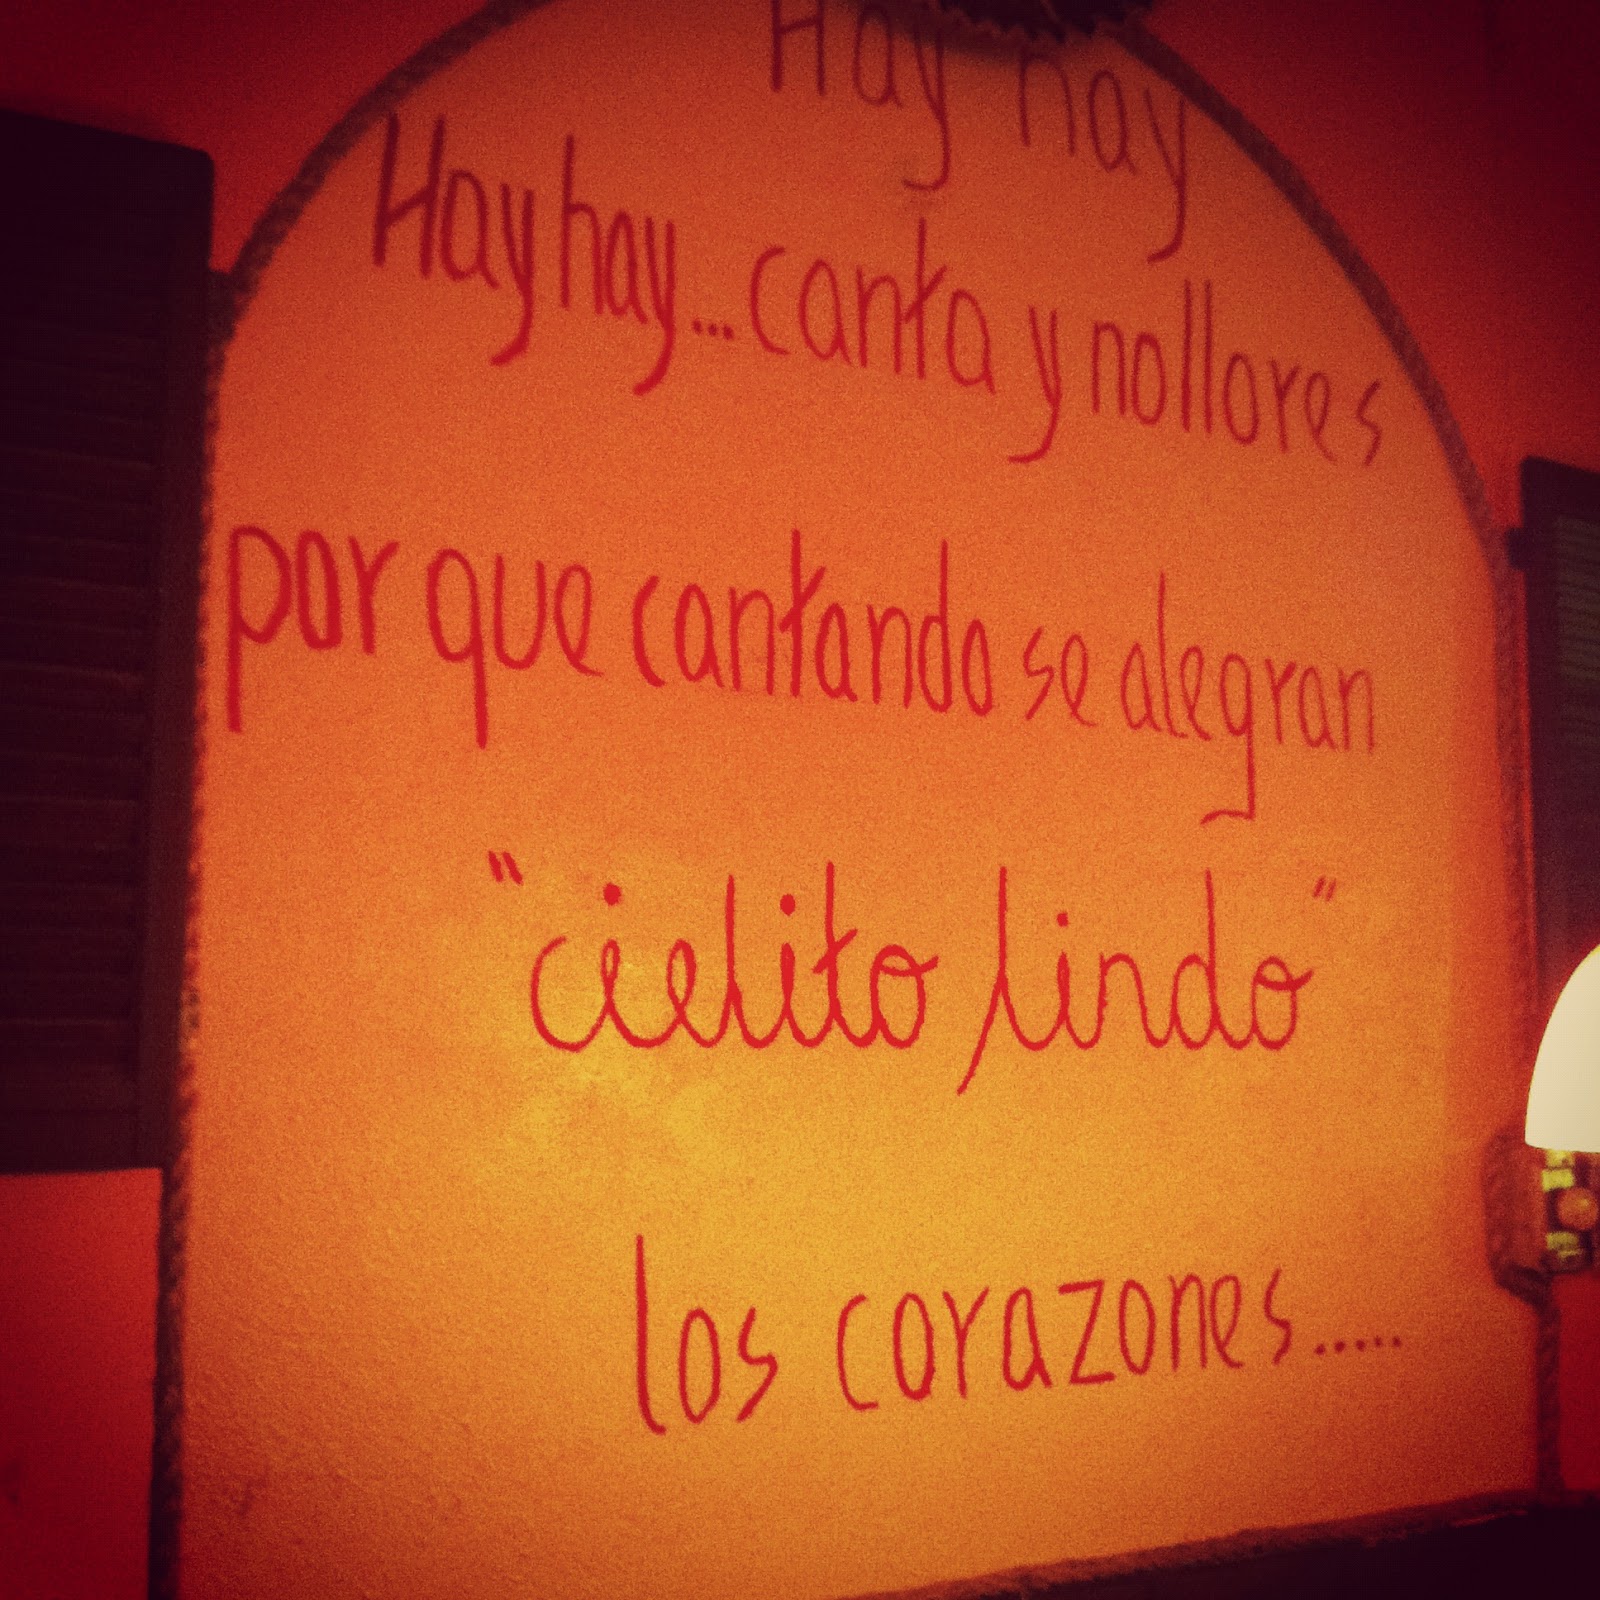 Hay hay
Hay hay... canta y no llores
por que cantando se alegran
"cielito lindo"
los corazones.....